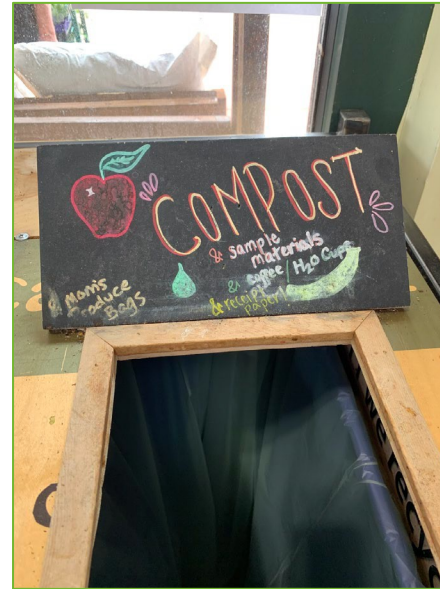 COMPOST
& sample
materials
& coffee / H₂O Cups
& receipt
paper!
& Mom's
Produce
Bags